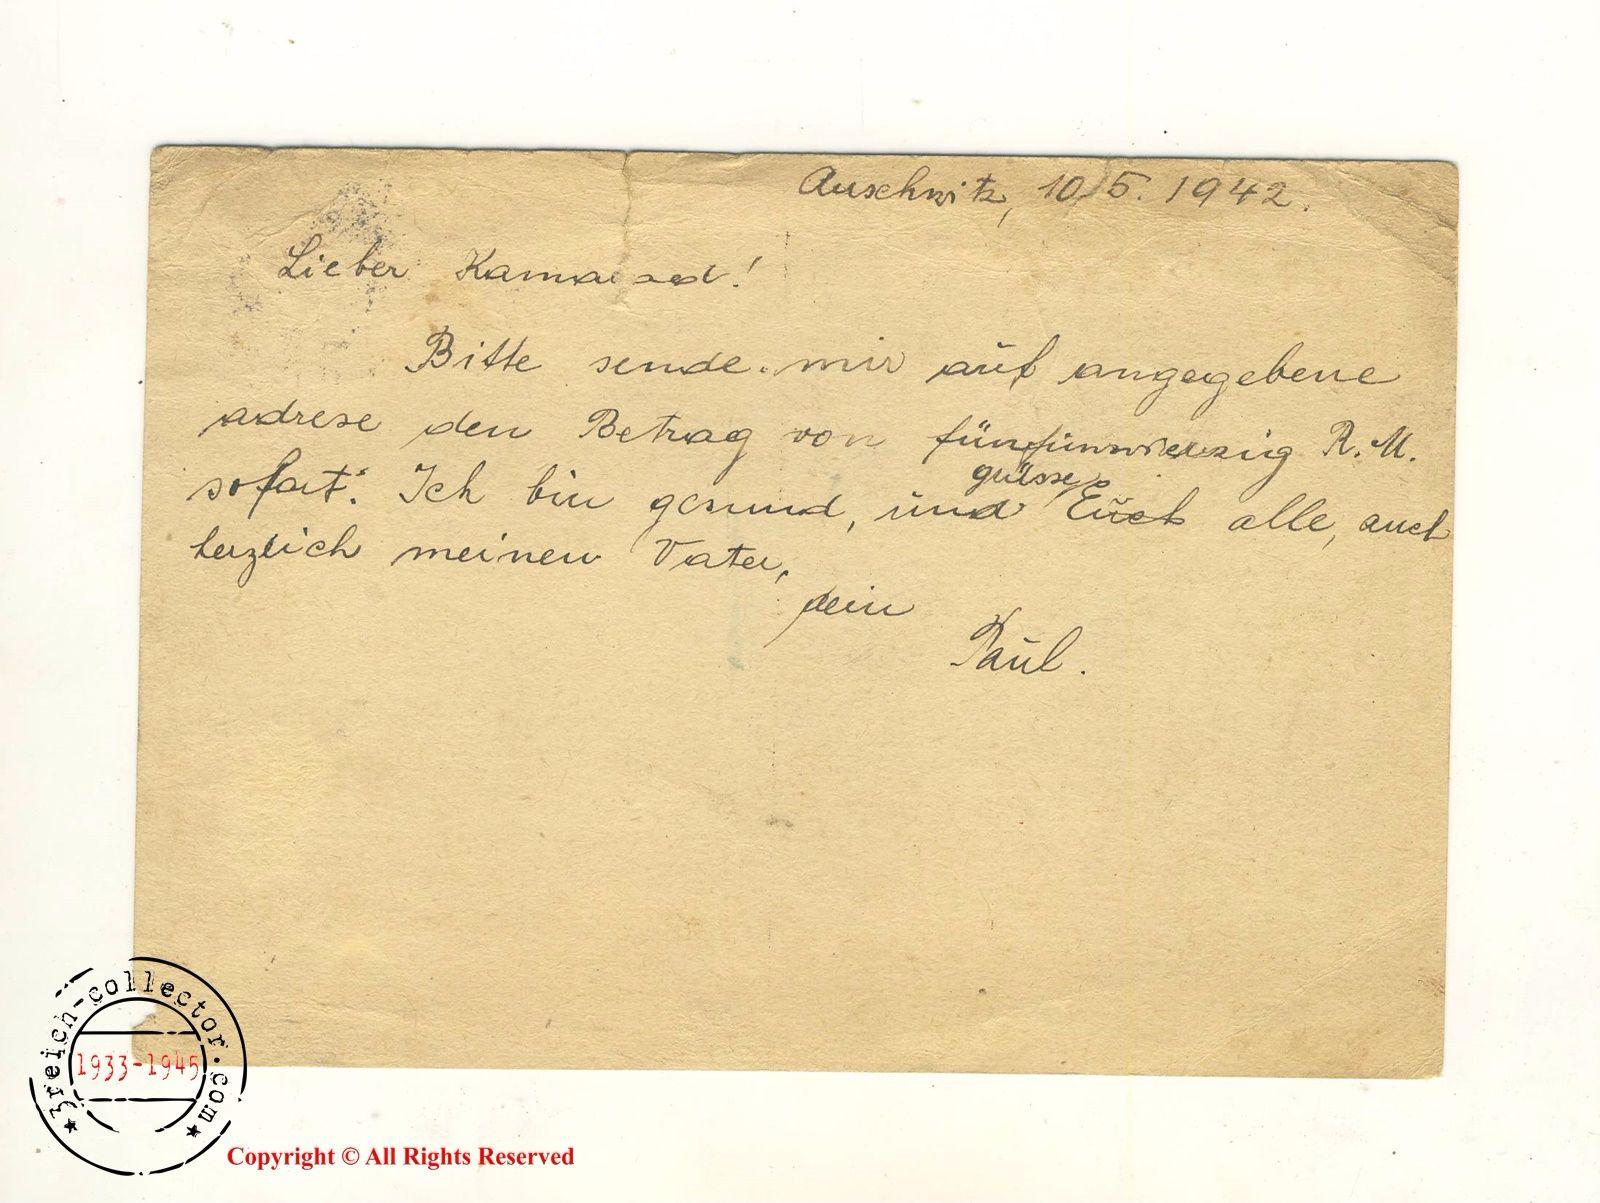 Auschwitz, 10/5. 1942.
Lieber Kamarad!
Bitte sende mir auf angegebene
adrese den Betrag von fünfunvierzig R.M.
sofort. Ich bin gesund, und grüsse Euch alle, auch
herzlich meinen Vater,
dein
Paul.
3reich-collector.com
1933-1945
Copyright © All Rights Reserved